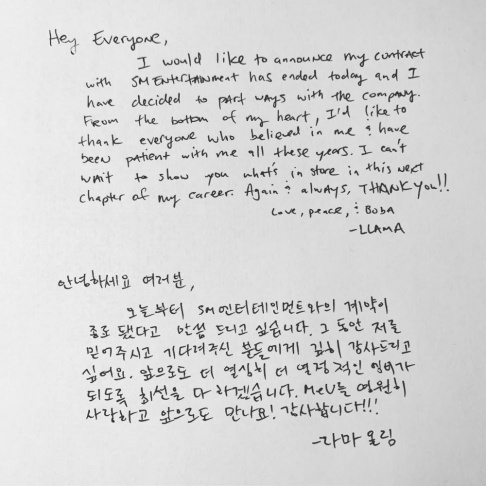 Hey Everyone,
I would like to announce my contract
with SM Entertainment has ended today and I
have decided to part ways with the company.
From the bottom of my heart, I'd like to
thank everyone who believed in me & have
been patient with me all these years. I can't
wait to show you what's in store in this next
chapter of my career. Again & always, THANK YOU!!
Love, peace, & BOBA
-LLAMA
안녕하세요 여러분,
오늘부터 SM엔터테인먼트와의 계약이
종료 됐다고 말씀 드리고 싶습니다. 그 동안 저를
믿어주시고 기다려주신 분들에게 깊히 감사드리고
싶어요. 앞으로도 더 열심히 더 열정적인 엠버가
되도록 최선을 다 하겠습니다. MeU들 영원히
사랑하고 앞으로도 만나요! 감사합니다!!!
-라마 올림